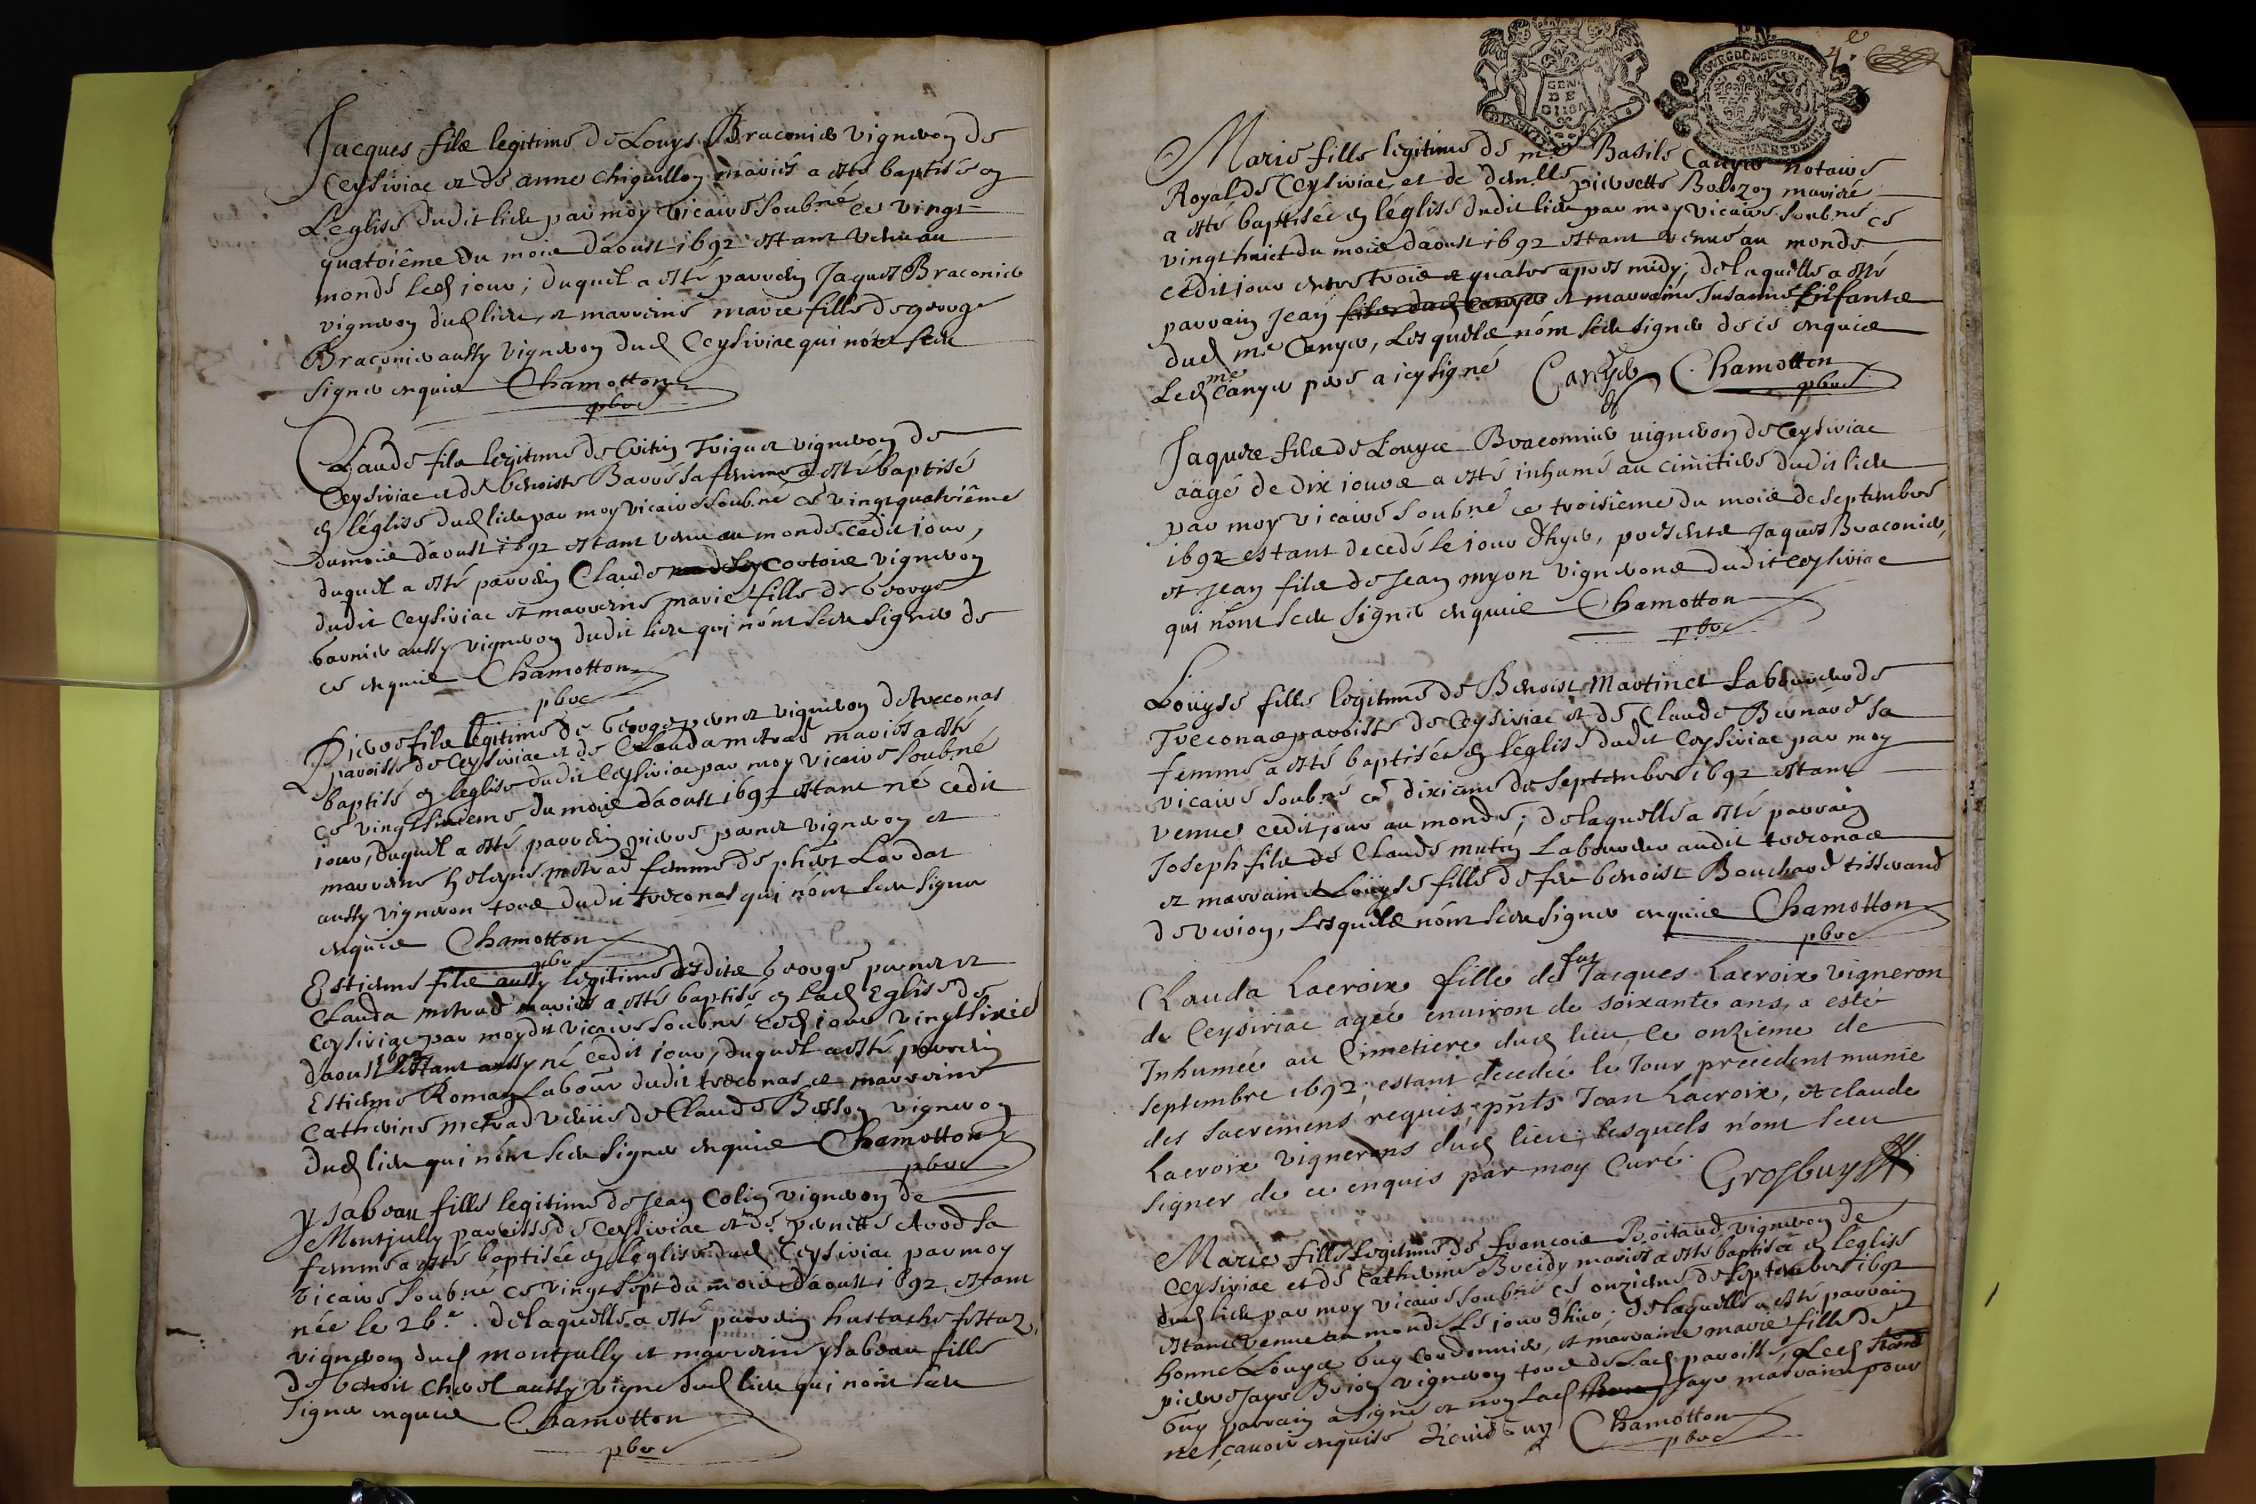 Jacques filz legitime de Louys Braconier vigneron de
Ceysiriac et de anne chiguillon mariés a esté baptisé en
Leglise dudit lieu par moy vicaire soubné ce vingt
quatriême du mois d'aoust 1692 estant venu au
monde led jour ; duquel a esté parrein Jaques Braconier
vigneron dud lieu, et marreine marie fille de george
Braconier aussy vigneron dud Ceysiriac qui n'ont sceu
signer enquis Chamotton
pbre
Claude filz legitime de Triquet vigneron de
Ceysiriac et de benoiste Barré sa femme a esté baptisé
en l'église dud lieu par moy vicaire soubné ce vingt quatriême
du mois d'aoust 1692 estant venu au monde cedit jour,
duquel a esté parrein Claude Cortois vigneron
dudit Ceysiriac et marreine marie fille de George
barnier aussy vigneron dudit lieu qui n'ont sceu signer de
ce enquis Chamotton
pbre
Pierre filz legitime de George perret vigneron de Treconas
paroisse de Ceysiriac et de Clauda metrad mariés a esté
baptisé en leglise dudit Ceysiriac par moy vicaire soubné
ce vingt sixieme du mois d'aoust 1692 estant né cedit
jour, duquel a esté parrein pierre perret vigneron et
marreine helayne metrad femme de phibt Lardat
aussy vigneron tous dudit treconas qui n'ont sceu signer
enquis Chamotton
pbre
Estienne filz aussy legitime desdits George perret et
Clauda metrad mariés a esté baptisé en lad Eglise de
Ceysiriac par moydit vicaire soubné ced jour vingt sixie
d'aoust 1692 estant aussy né cedit jour, duquel a esté parrein
Estienne Roman Labour dudit treconas et marreine
Catherine metrad vefve de Claude Besson vigneron
dud lieu qui n'ont sceu signer enquis Chamotton
pbre
ysabeau fille legitime de Jean Colin vigneron de
Montjully paroisse de Ceysiriac et de pernette Arod sa
femme a esté baptisée en leglise dud Ceysiriac par moy
vicaire soubné ce vingt sept du mois d'aoust 1692 estant
née le 26.e. de laquelle a esté parrein hustache
vigneron dud montjully et marreine ysabeau fille
de benoit aussy vigne dud lieu qui n'ont sceu
signer enquis Chamotton
pbre
4.e
GEN.
DE
DIION
BOVRGOGNE ET BRESSE
Marie fille legitime de m.re Basile Canyer notaire
Royal de Ceysiriac, et de dem.lle pierrette Bolozon mariés
a esté baptisée en l'église dudit lieu par moy vicaire soubné ce
vingt huict du mois d'aoust 1692 estant venue au monde
cedit jour entre trois et quatre apres midy ; de laquelle a esté
parrain Jean filz dud Canyer et marraine Susanne Enfants
dud m.re Canyer, Lesquels n'ont sceu signer de ce enquis
Led m.re Canyer pere a icy signé Canyer Chamotton
pbre
Jaques filz de Louys Braconnier vigneron de Ceysiriac
aagé de dix jours a esté inhumé au cimitiere dudit lieu
par moy vicaire soubné ce troisieme du mois de septembre
1692 estant decedé le jour d'hyer, presents Jaques Braconier,
et Jean filz de Jean myon vignerons dudit Ceysiriac
qui n'ont sceu signer enquis Chamotton
pbre
Loüyse fille legitime de Benoist Martinet Laboureur de
Treconas paroisse de Ceysiriac et de Claude Bernard sa
femme a esté baptisée en l'église dudit Ceysiriac par moy
vicaire soubné ce dixieme de septembre 1692 estant
venue cedit jour au monde ; de laquelle a esté parrain
Joseph filz de Claude mutin Laboureur audit treconas
et marraine Loüyse fille de feu benoist Bouchard tisserand
de virion, Lesquels n'ont sceu signer enquis Chamotton
pbre
Clauda Lacroix fille de fut Jacques Lacroix Vigneron
de Ceysiriac agée environ de soixante ans, a esté
Inhumée au Cimetiere dud lieu, le onzieme de
septembre 1692, estant decedée le Jour precedent munie
des sacremens requis, pnts Jean Lacroix, et claude
Lacroix Vignerons dud lieu, lesquels n'ont sceu
signer de ce enquis par moy Curé. Grosbuys
Marie fille legitime de françois Boitard vigneron de
Ceysiriac et de Catherine Breidy mariés a esté baptisée en leglise
dud lieu par moy vicaire soubné ce onzieme de septembre 1692
estant venue au monde le jour d'hier ; de laquelle a esté parrain
honne Louys Guy Cordonnier, et marraine marie fille de
pierre Jays Brion vigneron tous de lad paroisse, Led
Guy parrain a signé et non lad Jays marraine pour
ne sçavoir enquise Guy Chamotton
pbre